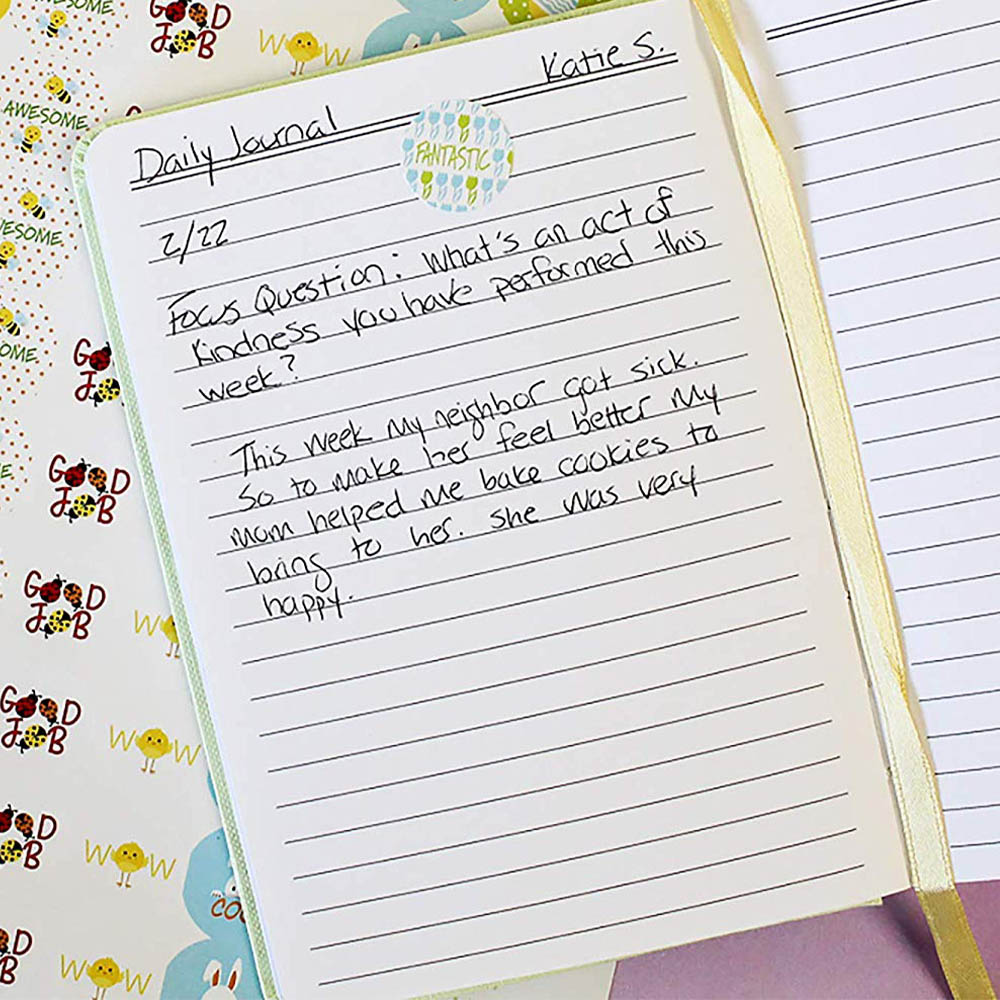 GOOD
JOB
WOW
AWESOME
Katie S.
Daily Journal
FANTASTIC
2/22
Focus Question: What's an act of
kindness you have performed this
week?
This week my neighbor got sick.
So to make her feel better my
mom helped me bake cookies to
bring to her. She was very
happy.
ESOME
OME
GO
JO
GOOD
JOB
GOOD
JOB
GOOD
JOB
WOW
OD
OB
WOW
COO
D
WOW